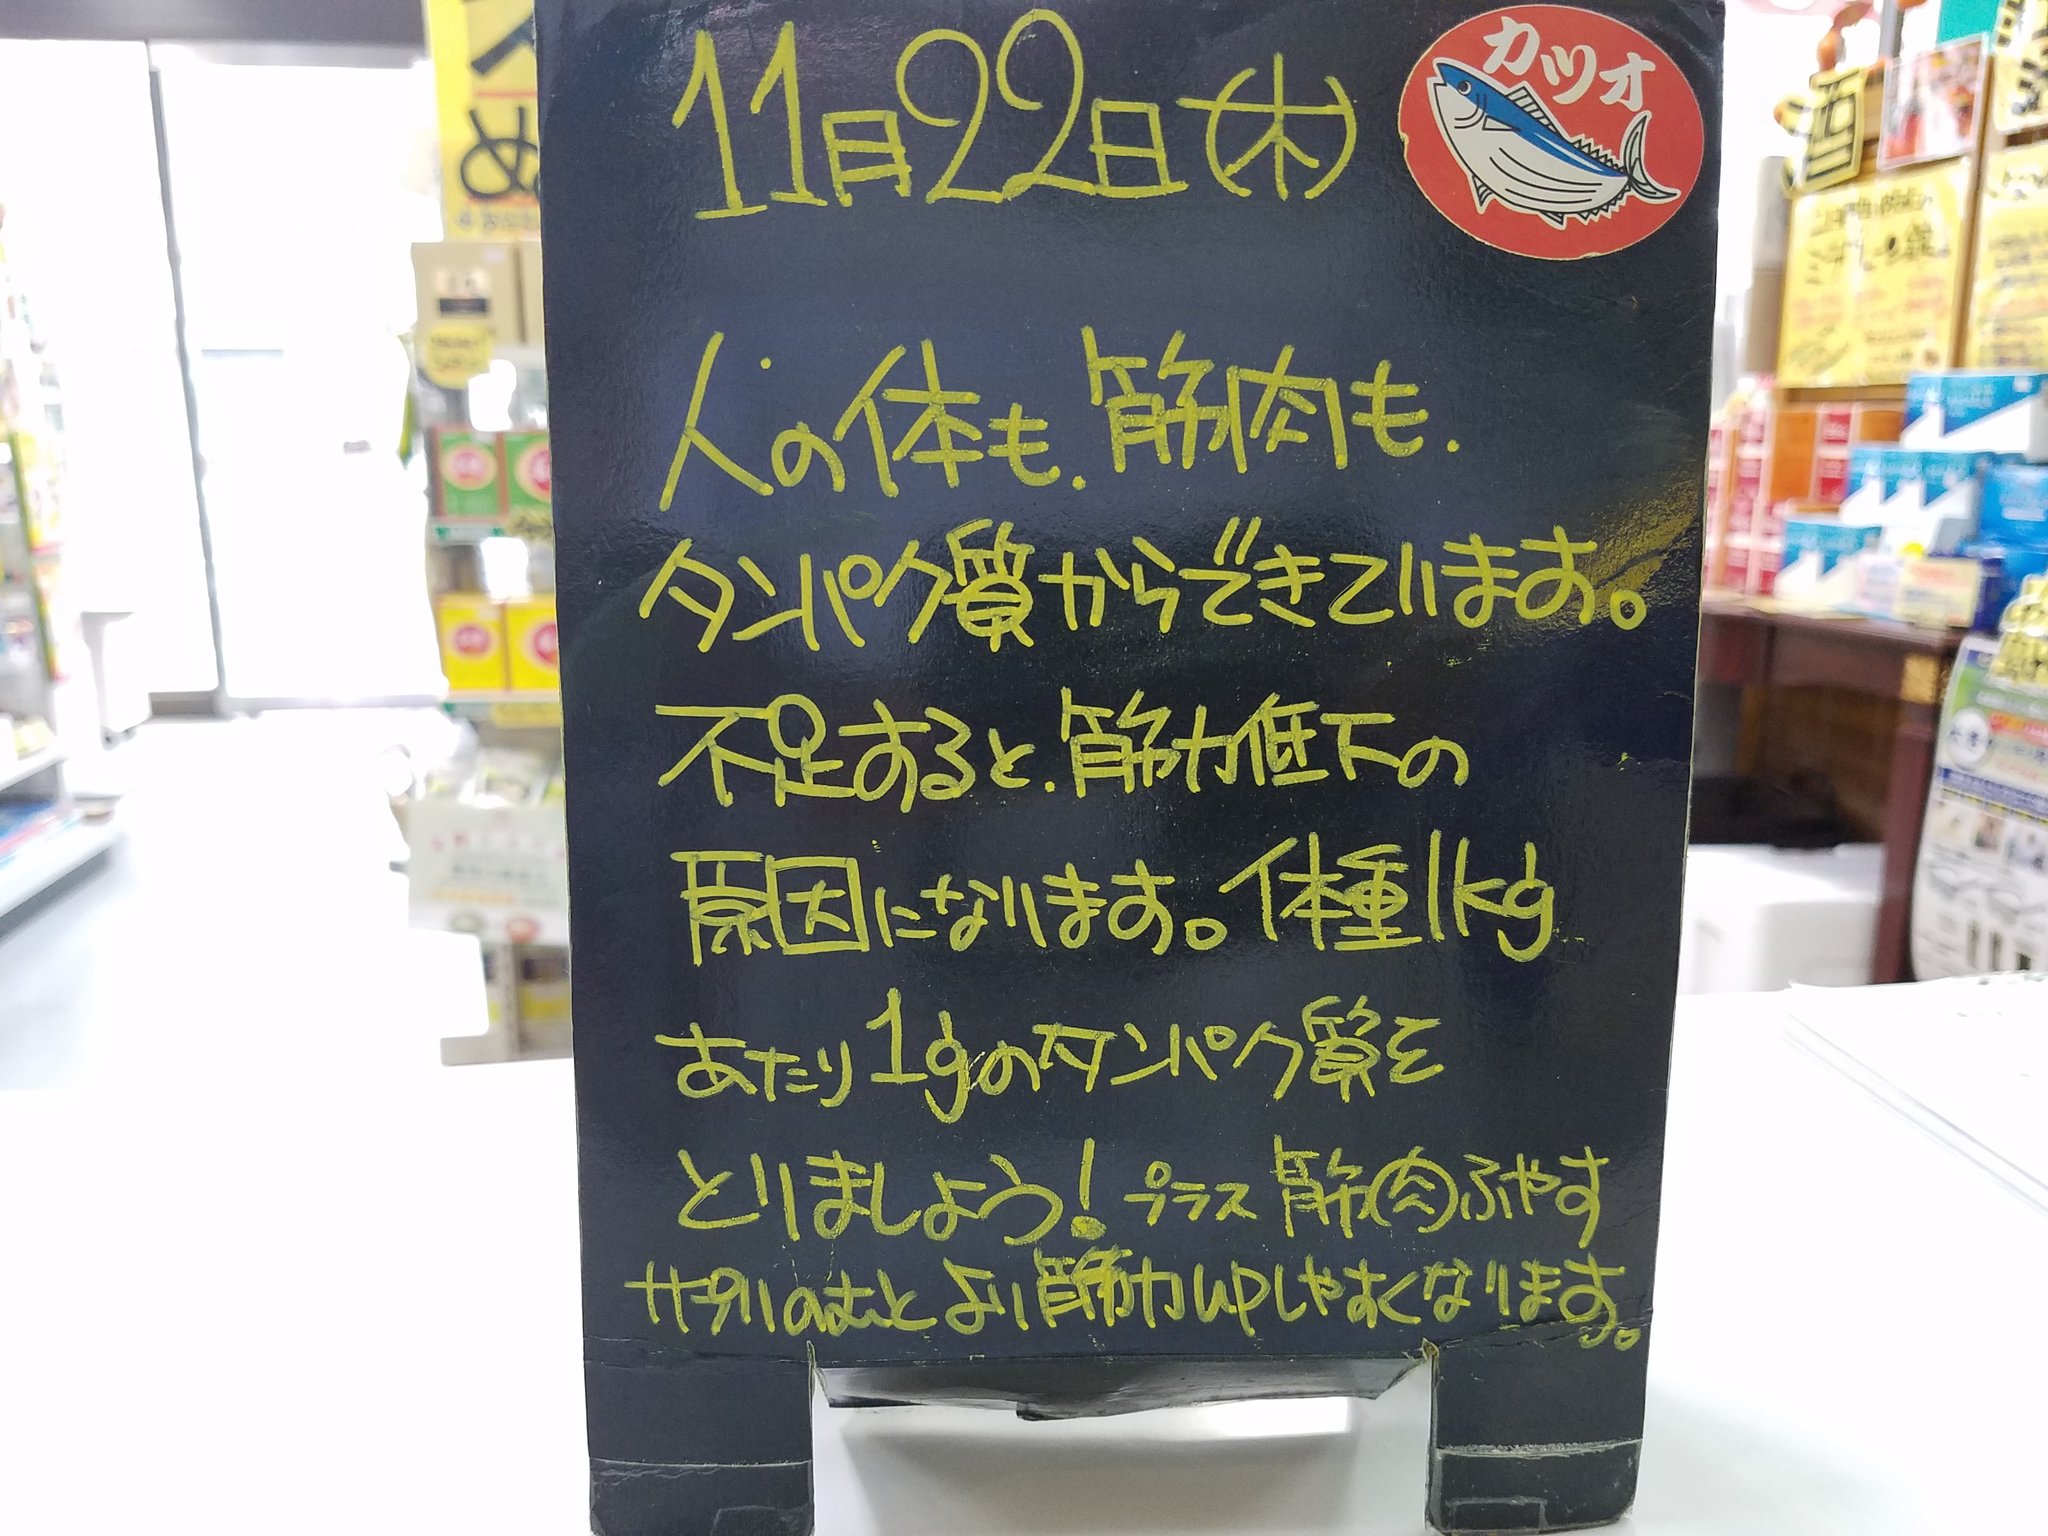 11月22日(木)
カツオ
人の体も.筋肉も.
タンパク質からできています。
不足すると.筋力低下の
原因になります。体重1kg
あたり1gのタンパク質を
とりましょう!プラス筋肉ふやす
サプリのむとより筋力upしやすくなります。
ぬ
酒